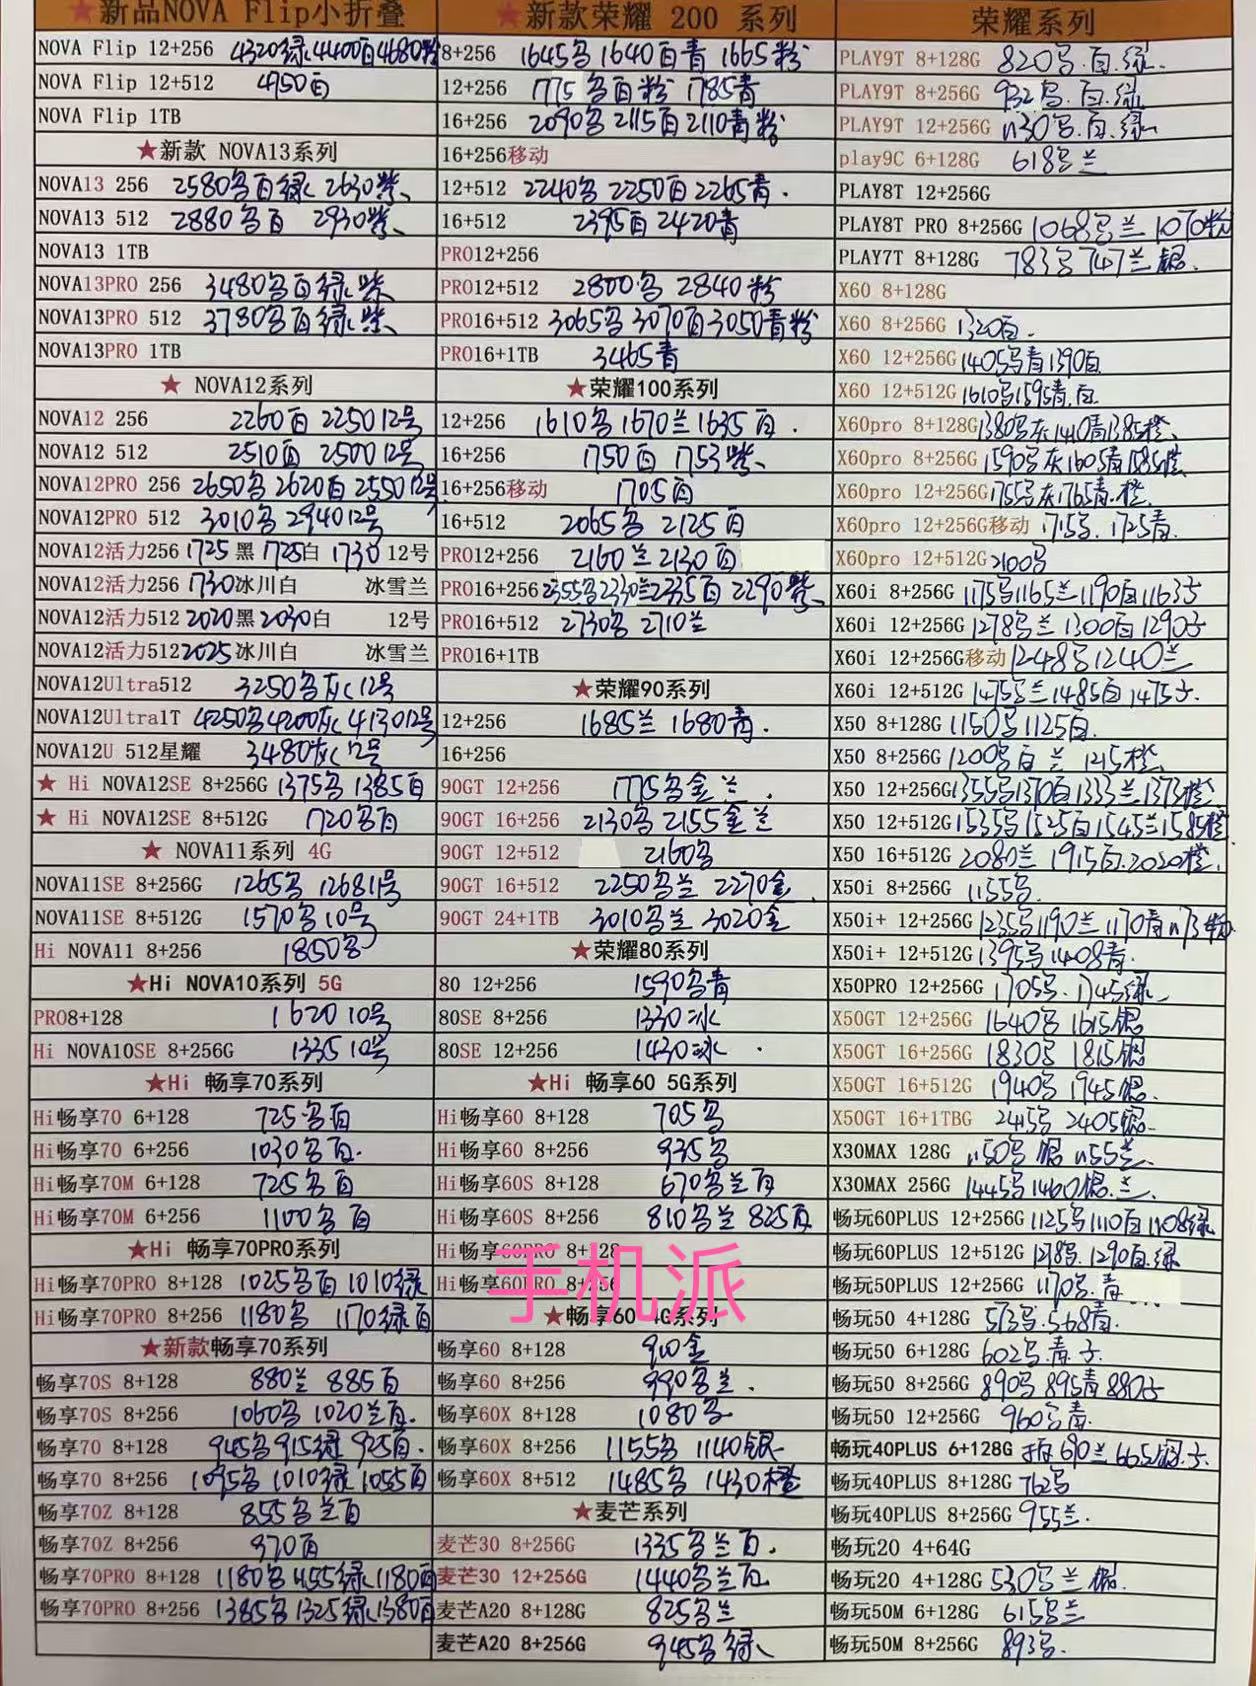 ★新品NOVA Flip小折叠
NOVA Flip 12+256 4320绿4400白4680粉
NOVA Flip 12+512 4950白
NOVA Flip 1TB
★新款 NOVA13系列
NOVA13 256 2580黑白绿 2630紫
NOVA13 512 2880黑白 2930紫
NOVA13 1TB
NOVA13PRO 256 3480黑白绿紫
NOVA13PRO 512 3780黑白绿紫
NOVA13PRO 1TB
★ NOVA12系列
NOVA12 256 2260白 2250 12号
NOVA12 512 2510白 2500 12号
NOVA12PRO 256 2650黑 2620白 2550 12号
NOVA12PRO 512 3010黑 2940 12号
NOVA12活力256 1725黑 1725白 1730 12号
NOVA12活力256 1730冰川白 冰雪兰
NOVA12活力512 2020黑 2030白 12号
NOVA12活力512 2025冰川白 冰雪兰
NOVA12Ultra512 3250黑灰 12号
NOVA12Ultra1T 4250黑4200灰 4130 12号
NOVA12U 512星耀 3480灰 12号
★ Hi NOVA12SE 8+256G 1375黑 1385白
★ Hi NOVA12SE 8+512G 1720黑白
★ NOVA11系列 4G
NOVA11SE 8+256G 1265黑 1268 11号
NOVA11SE 8+512G 1570黑 10号
Hi NOVA11 8+256 1850黑
★Hi NOVA10系列 5G
PRO8+128 1620 10号
Hi NOVA10SE 8+256G 1335 10号
★Hi 畅享70系列
Hi畅享70 6+128 725黑白
Hi畅享70 6+256 1030黑白.
Hi畅享70M 6+128 725黑白
Hi畅享70M 6+256 1100黑白
★Hi 畅享70PRO系列
Hi畅享70PRO 8+128 1025黑白 1010绿
Hi畅享70PRO 8+256 1180黑 1170绿白
★新款畅享70系列
畅享70S 8+128 880兰 885白
畅享70S 8+256 1060黑 1020兰白.
畅享70 8+128 945黑 915绿 925白.
畅享70 8+256 1095黑 1010绿 1055白
畅享70Z 8+128 855黑兰白
畅享70Z 8+256 970白
畅享70PRO 8+128 1180黑 1155绿 1180白
畅享70PRO 8+256 1385黑 1325绿 1380白
★新款荣耀 200 系列
8+256 1645黑 1640白青 1665粉
12+256 1775黑白粉 1785青
16+256 2090黑 2115白 2110青粉
16+256移动
12+512 2240黑 2250白 2265青.
16+512 2395白 2420青
PRO12+256
PRO12+512 2800黑 2840粉
PRO16+512 3065黑 3070白 3050青粉
PRO16+1TB 3465青
★荣耀100系列
12+256 1610黑 1670兰 1635白.
16+256 1750白 1753紫
16+256移动 1705白
16+512 2065黑 2125白
PRO12+256 2160兰 2130白
PRO16+256 2355黑 2330兰 2335白 2290紫
PRO16+512 2730黑 2710兰
PRO16+1TB
★荣耀90系列
12+256 1685兰 1680青.
16+256
90GT 12+256 1775黑金兰.
90GT 16+256 2130黑 2155金兰
90GT 12+512 2160黑
90GT 16+512 2250黑兰 2270金
90GT 24+1TB 3010黑兰 3020金
★荣耀80系列
80 12+256 1590黑青
80SE 8+256 1330冰
80SE 12+256 1430冰.
★Hi 畅享60 5G系列
Hi畅享60 8+128 705黑
Hi畅享60 8+256 935黑
Hi畅享60S 8+128 670黑兰白
Hi畅享60S 8+256 810黑兰 825白
Hi畅享60PRO 8+128
Hi畅享60PRO 8+256
手机派
★畅享60 4G系列
畅享60 8+128 910金
畅享60 8+256 990黑兰.
畅享60X 8+128 1080黑
畅享60X 8+256 1155黑 1140银
畅享60X 8+512 1485黑 1430橙
★麦芒系列
麦芒30 8+256G 1335黑兰白.
麦芒30 12+256G 1440黑兰白
麦芒A20 8+128G 825黑兰
麦芒A20 8+256G 945黑绿
荣耀系列
PLAY9T 8+128G 820黑.白.绿.
PLAY9T 8+256G 932黑.白.绿
PLAY9T 12+256G 1130黑.白.绿
play9C 6+128G 618黑兰
PLAY8T 12+256G
PLAY8T PRO 8+256G 1068黑兰 1070粉
PLAY7T 8+128G 783黑 747兰银.
X60 8+128G
X60 8+256G 1320白.
X60 12+256G 1405黑青1390白
X60 12+512G 1610黑1595青.白
X60pro 8+128G 1380黑灰1410青1385橙
X60pro 8+256G 1590黑灰1605青1585橙
X60pro 12+256G 1755黑灰1765青.橙
X60pro 12+256G移动 1715黑. 1725青.
X60pro 12+512G 2100黑
X60i 8+256G 1175黑1165兰1190白1163子
X60i 12+256G 1278黑兰 1300白1290子
X60i 12+256G移动 1248黑1240兰
X60i 12+512G 1475黑兰1485白1475子.
X50 8+128G 1150黑1125白.
X50 8+256G 1200黑白 兰 1215橙
X50 12+256G 1355黑1370白1333兰1373橙
X50 12+512G 1535黑1525白1545兰1585橙
X50 16+512G 2080兰 1915白.2020橙.
X50i 8+256G 1155黑.
X50i+ 12+256G 1235黑1190兰1170青1173粉
X50i+ 12+512G 1395黑1408青.
X50PRO 12+256G 1705黑. 1745绿
X50GT 12+256G 1640黑 1615银
X50GT 16+256G 1830黑 1815银
X50GT 16+512G 1940黑 1945银.
X50GT 16+1TBG 2415黑 2405银
X30MAX 128G 1150黑 银 1155兰.
X30MAX 256G 1445黑1460银.兰.
畅玩60PLUS 12+256G 1125黑1110白1108绿
畅玩60PLUS 12+512G 1278黑.1290白.绿
畅玩50PLUS 12+256G 1170黑.青
畅玩50 4+128G 573黑.568青.
畅玩50 6+128G 602黑.青子.
畅玩50 8+256G 890黑895青880子
畅玩50 12+256G 960黑青.
畅玩40PLUS 6+128G 690兰 665银.子.
畅玩40PLUS 8+128G 762黑
畅玩40PLUS 8+256G 955兰.
畅玩20 4+64G
畅玩20 4+128G 530黑兰银.
畅玩50M 6+128G 615黑兰
畅玩50M 8+256G 893黑.